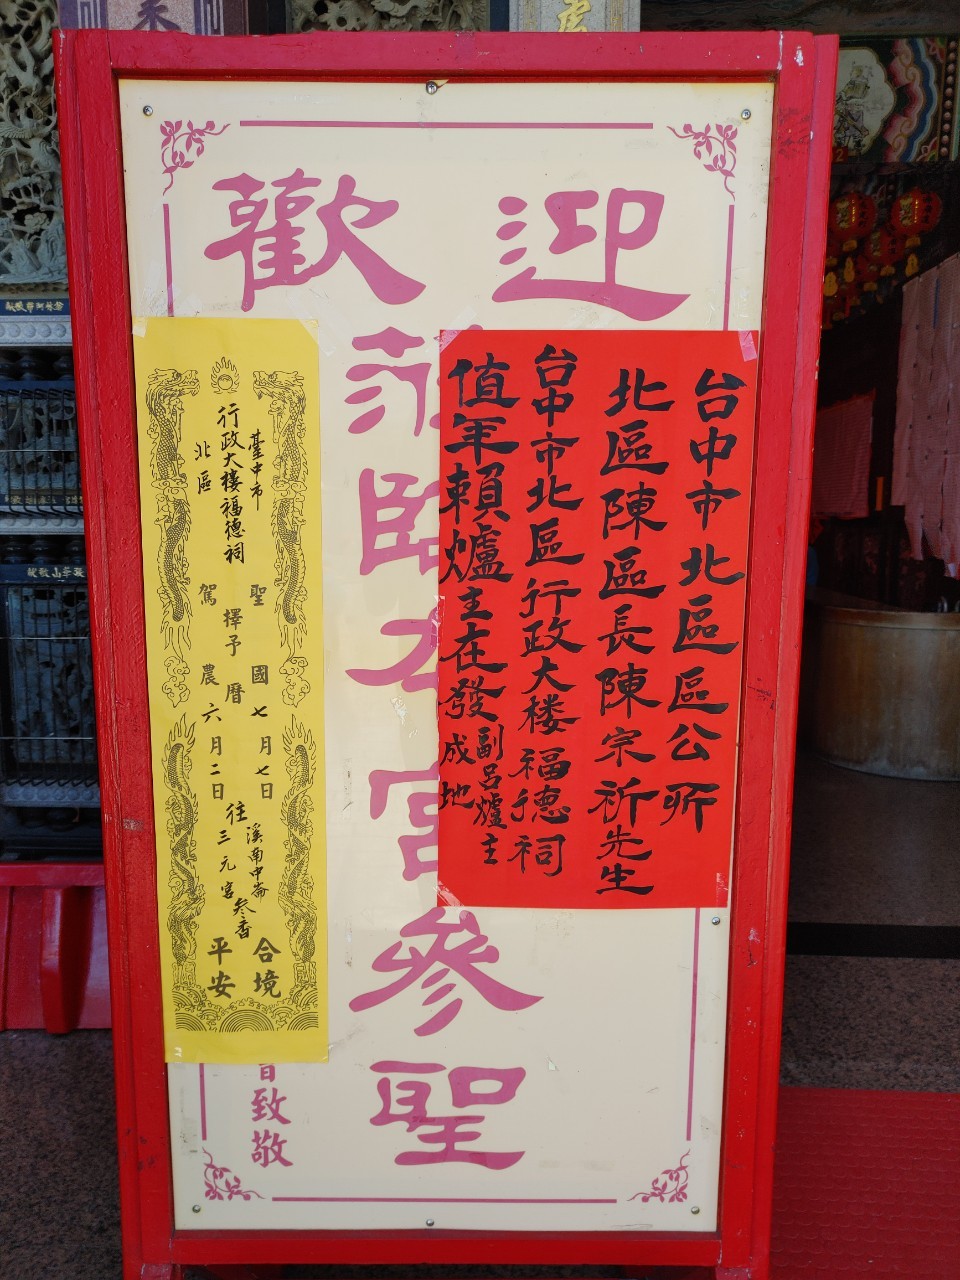 歡迎
宮參聖
致敬
台中市北區區公所
北區陳區長陳宗祈先生
台中市北區行政大楼福德祠
值年賴爐主在發成地
副呂爐主
臺中市
北區
行政大楼福德祠
聖駕
擇予
國農曆
七月七日
六月二日
往
溪南中崙
三元宮
参香
合境
平安